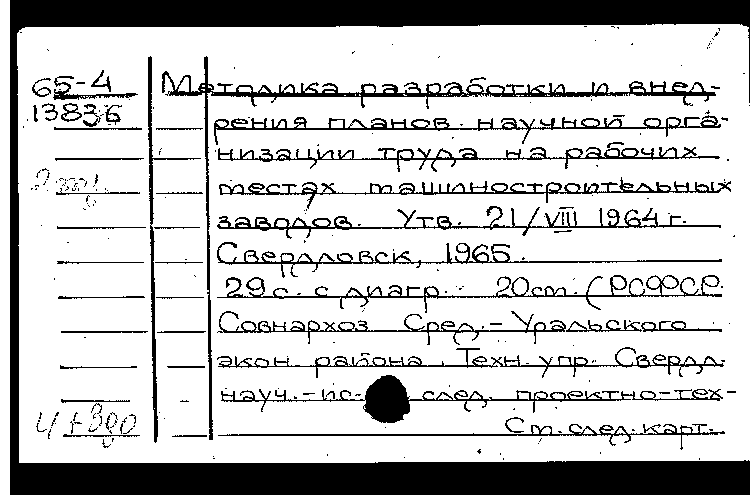 65-4
13836
Методика разработки и внед-
рения планов научной орга-
низации труда на рабочих
местах машиностроительных
заводов. Утв. 21/VIII 1964 г.
Свердловск, 1965.
29 с. с диагр. 20 см. (РСФСР.
Совнархоз Сред.-Уральского
экон. района. Техн. упр. Свердл.
науч.-ис-след. проектно-тех-
См. след. карт.